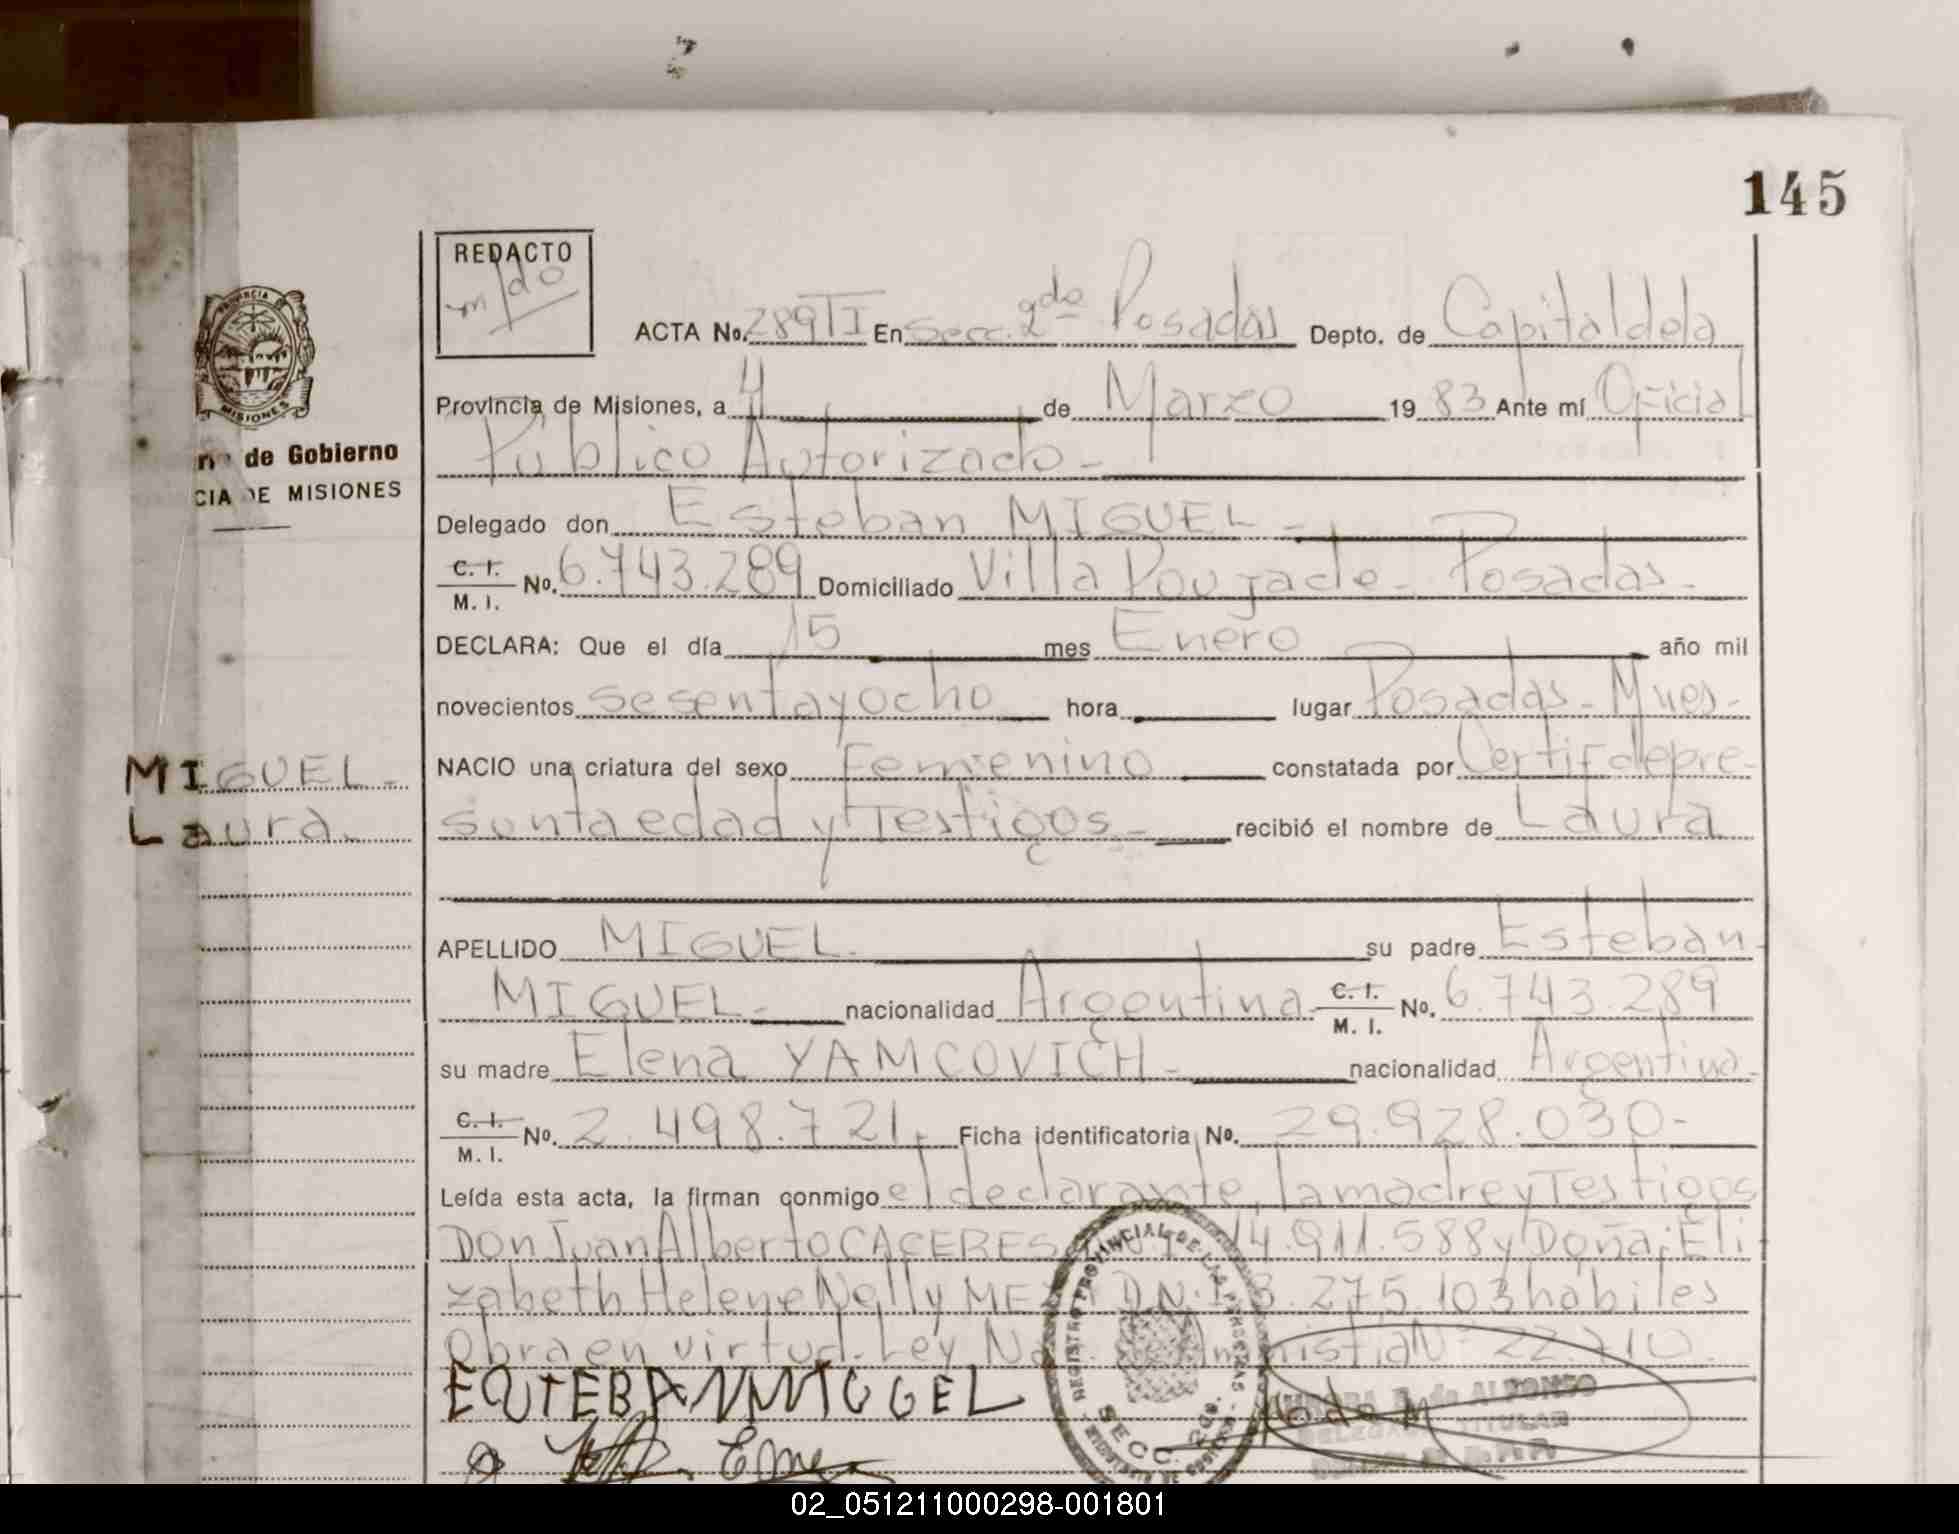 145
REDACTO
ACTA No. 289 TI En Secc. 2da Posadas Depto. de Capital de la
PROVINCIA DE
MISIONES
Provincia de Misiones, a 4 de Marzo 1983 Ante mí Oficial
Público Autorizado -
de Gobierno
CIA DE MISIONES
Delegado don Esteban MIGUEL -
C. I. M. I. No. 6.743.289 Domiciliado Villa Poujade - Posadas -
DECLARA: Que el día 15 mes Enero año mil
novecientos sesentayocho hora lugar Posadas - Mnes -
MIGUEL -
NACIO una criatura del sexo Femenino constatada por Certif de pre-
Laura.
sunta edad y Testigos - recibió el nombre de Laura
APELLIDO MIGUEL. su padre Esteban -
MIGUEL - nacionalidad Argentina C. I. M. I. No. 6.743.289
su madre Elena YAMCOVICH - nacionalidad Argentina -
C. I. M. I. No. 2.498.721. Ficha identificatoria No. 29.928.030 -
Leída esta acta, la firman conmigo el declarante, la madre y Testigos
Don Juan Alberto CACERES 14.911.588 y Doña: Eli-
zabeth Helene Nelly 13.275.103 habiles
Obra en virtud. Ley 22.710.
EQUTEBANMIGGEL
REGISTRO PROVINCIAL DE LAS PERSONAS
SECC. 2DA.
de ALFONSO
TITULAR
02_051211000298-001801